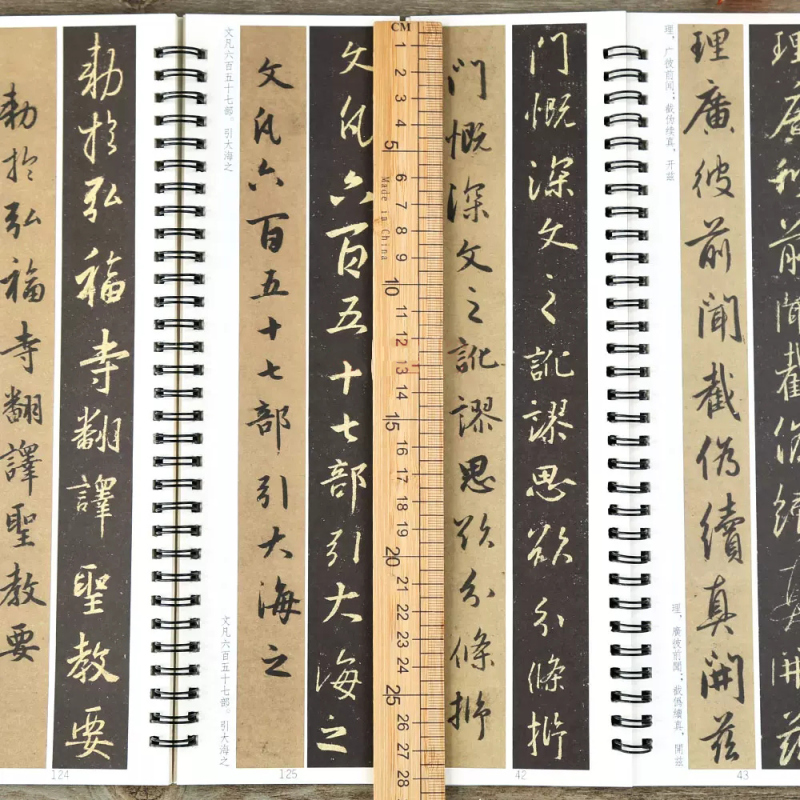 勅於弘福寺翻譯聖教要
勅於弘福寺翻譯聖教要
124
文凡六百五十七部。引大海之
文凡六百五十七部。引大海之
文凡六百五十七部引大海之
文凡六百五十七部引大海之
125
CM
1 2 3 4 5 6 7 8 9 10 11 12 13 14 15 16 17 18 19 20 21 22 23 24 25 26 27 28
Made in China
門慨深文之訛謬思欲分條析
門慨深文之訛謬思欲分條析
42
理，广彼前闻；截伪续真，开兹
理，廣彼前聞；截僞續真，開茲
理廣彼前聞截僞續真開茲
理廣彼前聞截僞續真開茲
43